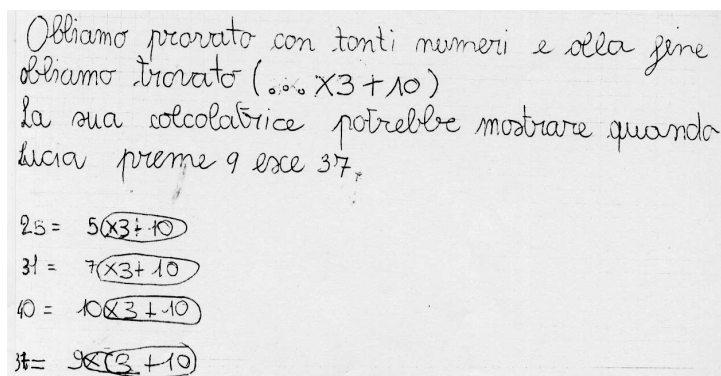 Abbiamo provato con tanti numeri e alla fine
abbiamo trovato (... x3+10)
La sua calcolatrice potrebbe mostrare quando
Lucia preme 9 esce 37.
25 = 5 x3+10
31 = 7 x3+10
40 = 10 x3+10
37 = 9x(3+10)